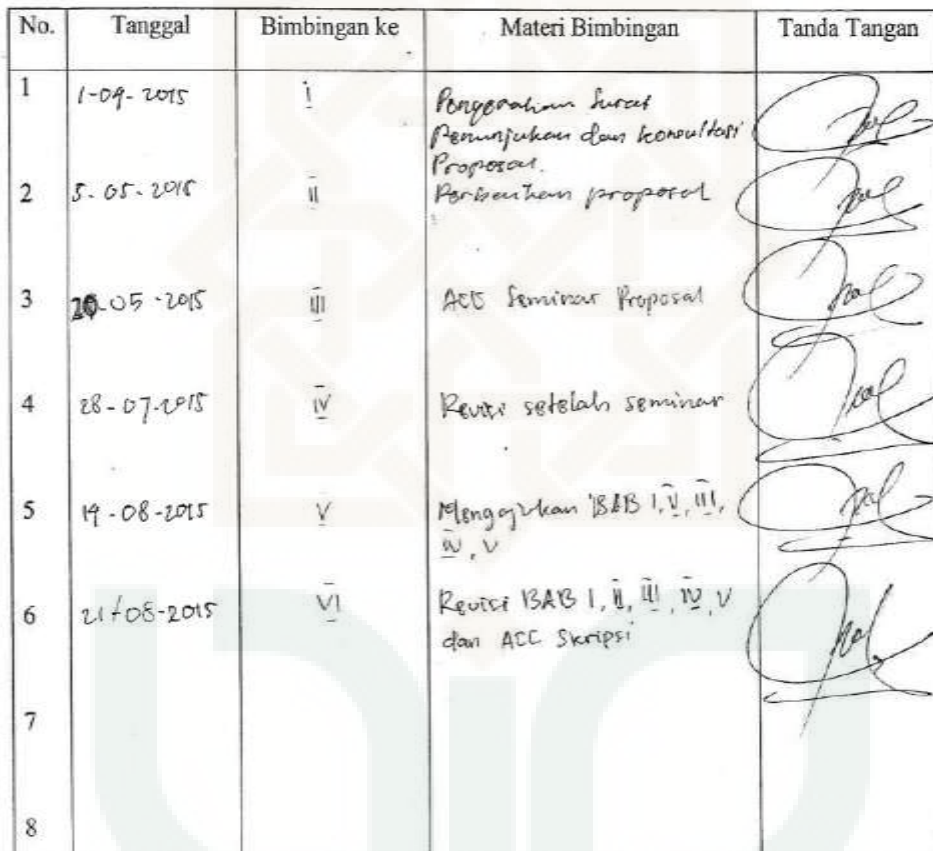 No. Tanggal Bimbingan ke Materi Bimbingan Tanda Tangan
1 1-04-2015 I Pengerahan Surat
Penunjukan dan konsultasi
Proposal.
2 5-05-2015 II Perbaikan proposal
3 20-05-2015 III ACC Seminar Proposal
4 28-07-2015 IV Revisi setelah seminar
5 19-08-2015 V Mengajukan BAB I, V, III,
IV, V
6 21/08-2015 VI Revisi BAB I, II, III, IV, V
dan ACC Skripsi
7
8